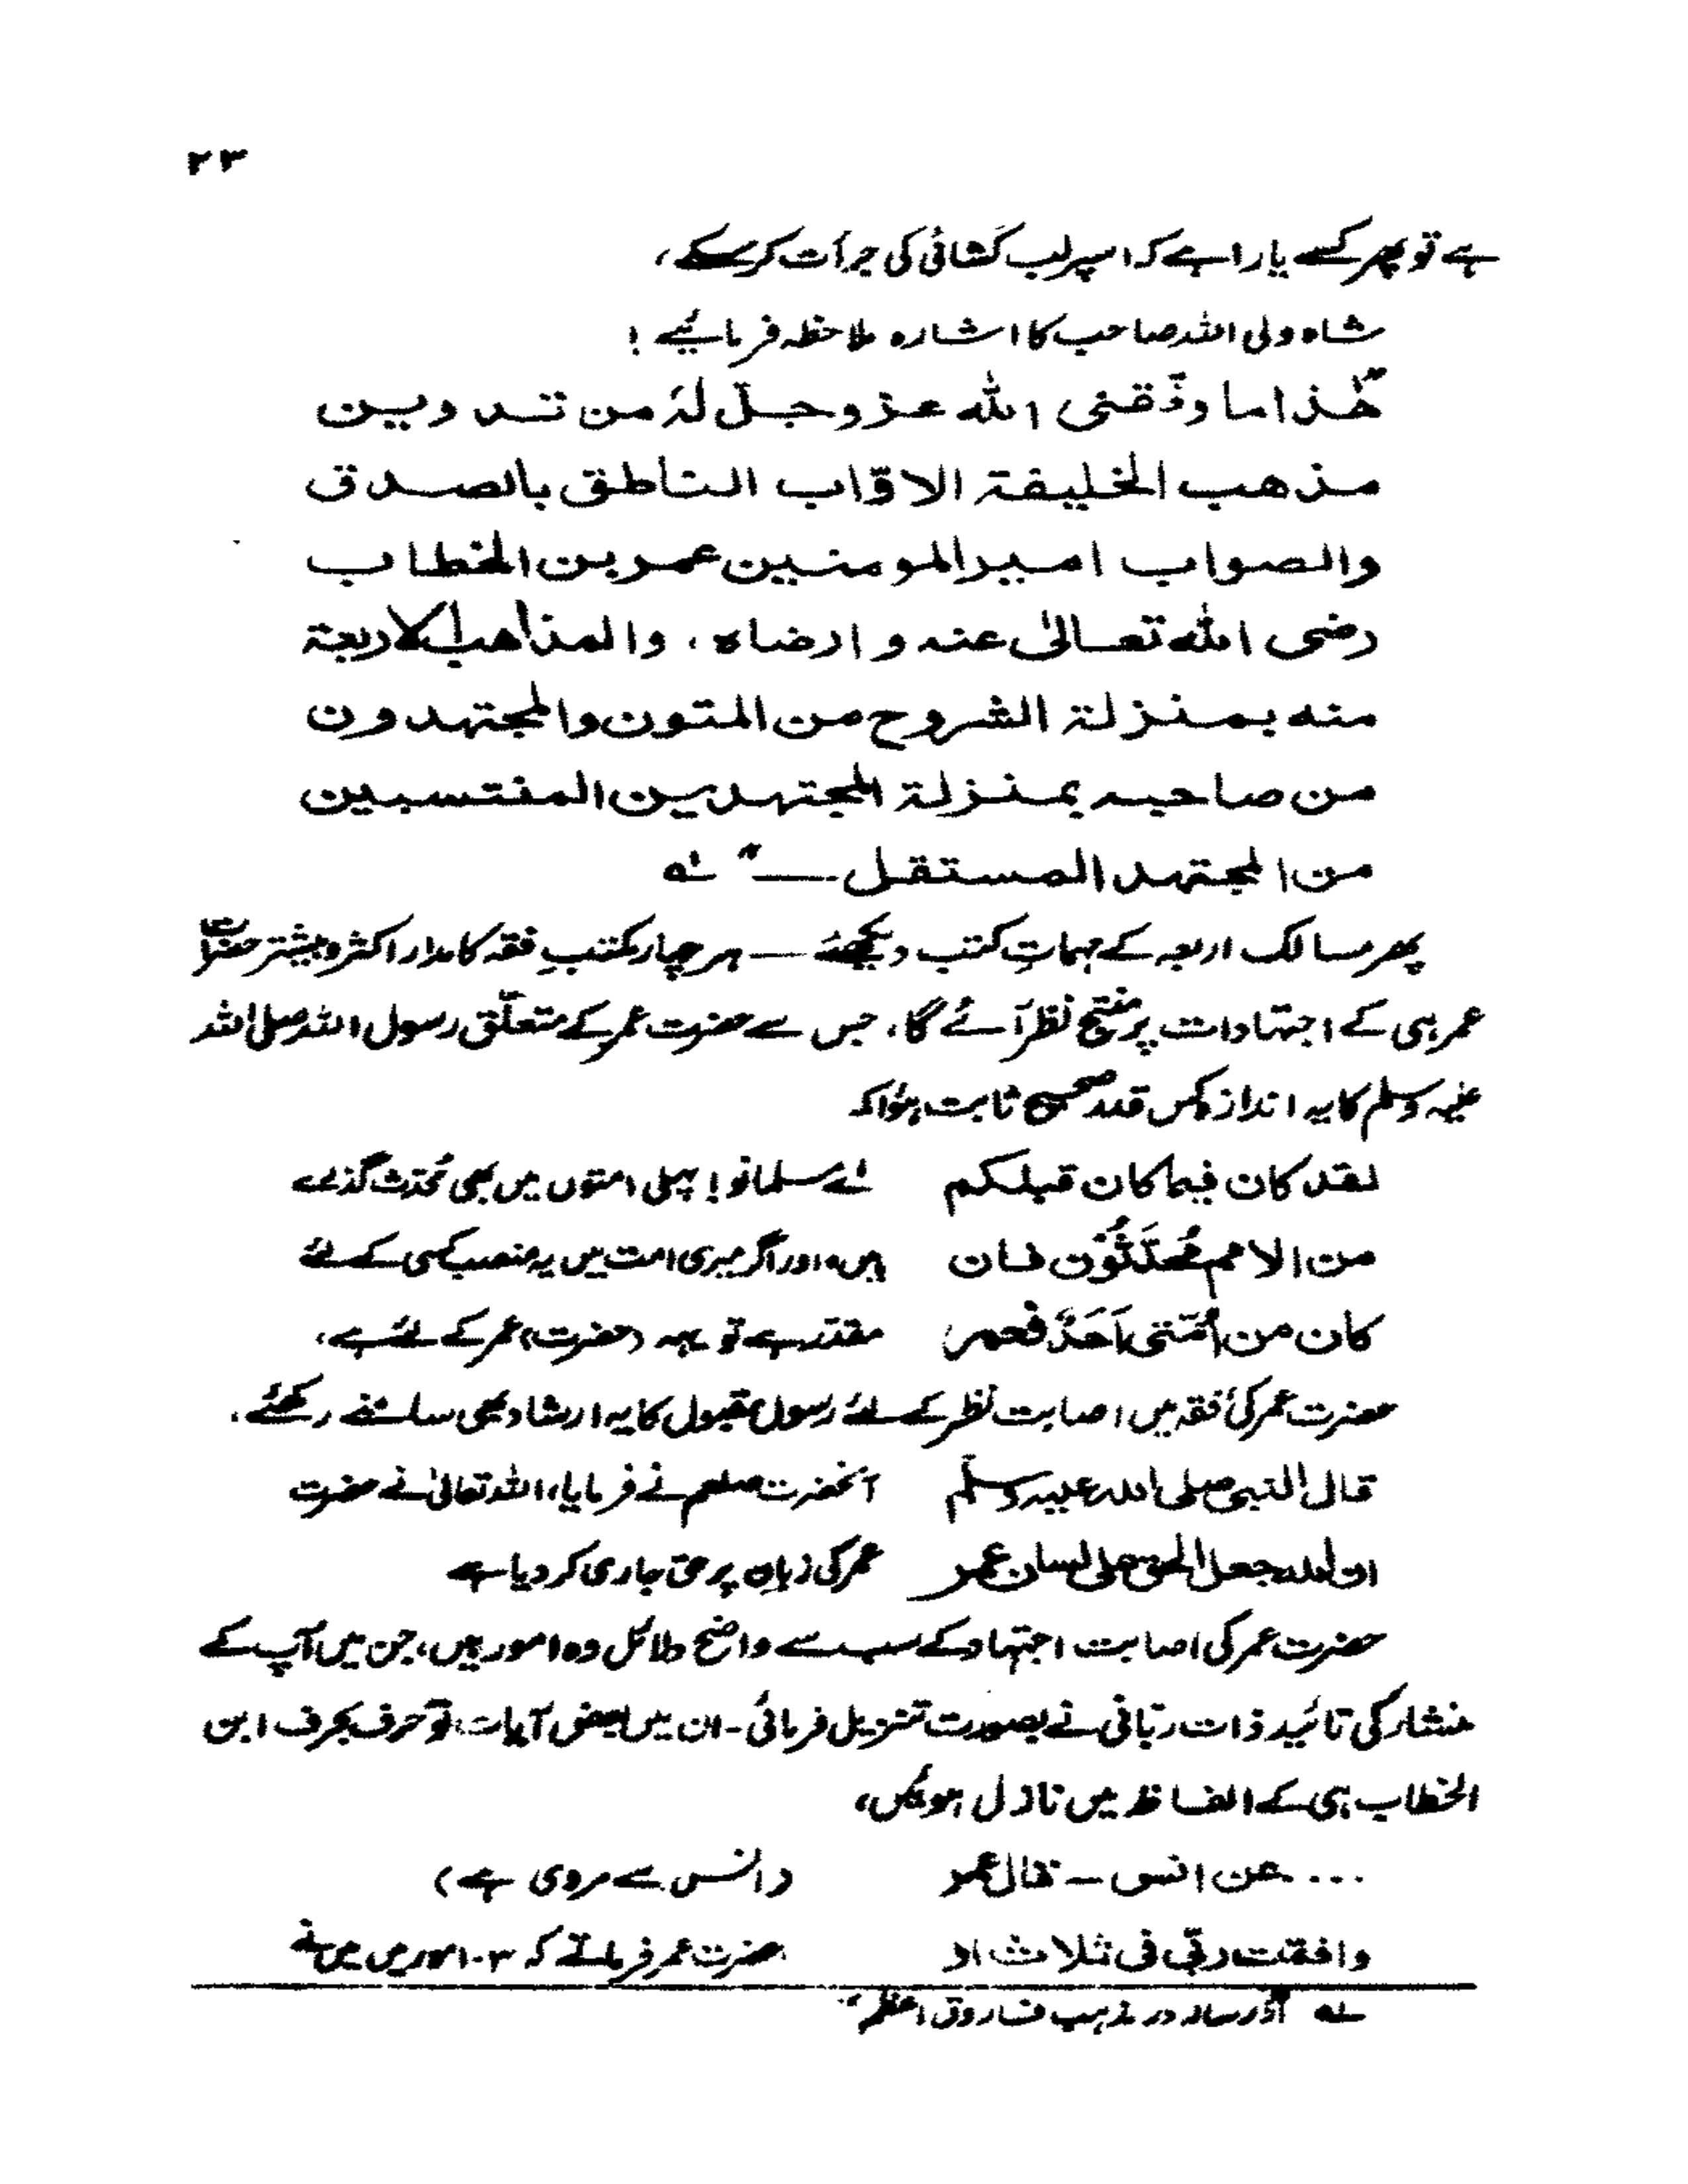 ۲۳
ہے تو پھر کسے یارا ہے کہ اسپر لب کشائی کی جرأت کر سکے،
شاہ ولی اللہ صاحب کا اشارہ ملاحظہ فرمائیے !
”ھٰذا ما وفّقنی اللہ عزوجلّ لہٗ من تدوین
مذھب الخلیفۃ الاوّاب الناطق بالصدق
والصواب امیرالمومنین عمر بن الخطاب
رضی اللہ تعالیٰ عنہ وارضاہ، والمذاھب الاربعۃ
منہ بمنزلۃ الشروح من المتون والمجتہدون
من صاحبہ بمنزلۃ المجتہدین المنتسبین
من المجتہد المستقل ــــ“ لہ
پھر مسالک اربعہ کے مہماتِ کتب دیکھئے ــ ہر چہار کتبِ فقہ کا مدار اکثر و بیشتر حضرات
عمر ہی کے اجتہادات پر منتج نظر آئے گا، جس سے حضرت عمر کے متعلّق رسول اللہ صلی اللہ
علیہ وسلم کا یہ انداز کس قدر صحیح ثابت ہؤا کہ
لقد کان فیما کان قبلکم اے مسلمانو! پہلی امتوں میں بھی مُحدّث گذرے
من الامم مُحَدَّثُوْن فان ہیں، اور اگر میری امت میں یہ منصب کسی کے لئے
کان من اُمّتی اَحَدٌ فعمر مقدّر ہے تو یہ (حضرت) عمر کے لئے ہے،
حضرت عمر کی فقہ میں اصابت نظر کے لئے رسول مقبول کا یہ ارشاد بھی سامنے رکھئے۔
قال النبی صلی اللہ علیہ وسلّم آنحضرت صلعم نے فرمایا، اللہ تعالیٰ نے حضرت
ان اللہ جعل الحق علی لسان عمر عمر کی زبان پر حق جاری کر دیا ہے
حضرت عمر کی اصابت اجتہاد کے سب سے واضح دلائل وہ امور ہیں، جن میں آپ کے
منشار کی تائید ذات ربّانی نے بصورت تنزیل فرمائی۔ ان میں بعض آیات تو حرف بحرف ابن
الخطاب ہی کے الفاظ میں نازل ہوئیں،
.... عن انس ــ قال عمر (انس سے مروی ہے)
وافقت ربّی فی ثلاث او حضرت عمر فرماتے کہ ۳۔ امور میں میں نے
لہ از رسالہ در مذہب فاروق اعظم“